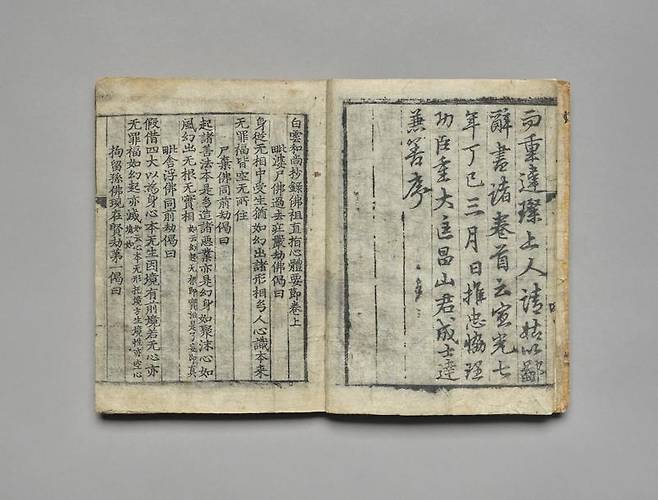 而重達璨上人請姑以鄙
辭書諸卷首云宣光七
年丁巳三月日推忠協理
功臣重大匡昌山君成士達
兼善序
白雲和尚抄錄佛祖直指心體要節卷上
毗婆尸佛過去莊嚴劫佛偈曰
身從无相中受生猶如幻出諸形相幻人心識本來
无罪福皆空无所住
尸棄佛同前劫偈曰
起諸善法本是幻造諸惡業亦是幻身如聚沫心如
風幻出无根无實相
毗舍浮佛同前劫偈曰
假借四大以爲身心本无生因境有前境若无心亦
无罪福如幻起亦滅
拘留孫佛現在賢劫第一偈曰